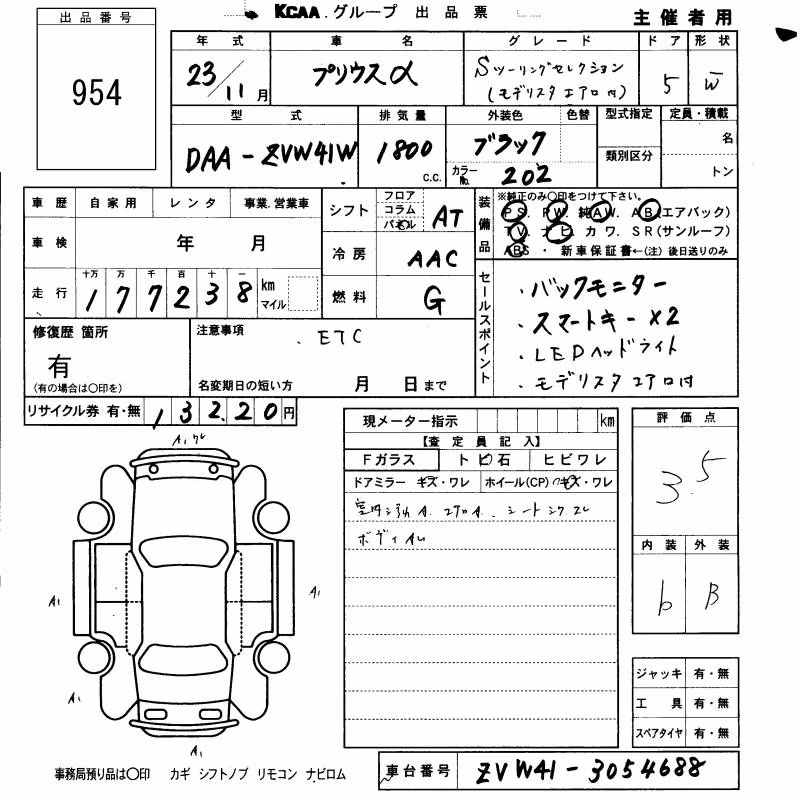 KCAA グループ 出品票
主催者用
出品番号
954
年式 車名 グレード ドア 形状
23/11月 プリウスα Sツーリングセレクション (モデリスタエアロ付) 5 W
型式 排気量 外装色 色替 型式指定 定員・積載
DAA-ZVW41W 1800 C.C. ブラック 類別区分 名
カラーNo. 202 トン
車歴 自家用 レンタ 事業.営業車
車検 年 月
走行 十万 万 千 百 十 一
177238 km マイル
シフト フロア コラム パネル AT
冷房 AAC
燃料 G
装備品 ※純正のみ〇印をつけて下さい。
PS. PW. 純AW. AB(エアバック)
TV. ナビ. カワ. SR(サンルーフ)
ABS ・ 新車保証書←(注) 後日送りのみ
セールスポイント
・バックモニター
・スマートキー×2
・LEDヘッドライト
・モデリスタエアロ付
修復歴 箇所
有
(有の場合は〇印を)
注意事項
・ETC
名変期日の短い方 月 日まで
リサイクル券 有・無 13220円
現メーター指示 km
【査定員記入】
Fガラス トビ石 ヒビワレ
ドアミラー キズ・ワレ ホイール(CP) キズ・ワレ
ボディ
評価点
3.5
内装 外装
b B
A1
A1
A1
A1
A1
ジャッキ 有・無
工具 有・無
スペアタイヤ 有・無
事務局預り品は〇印 カギ シフトノブ リモコン ナビロム
車台番号 ZVW41-3054688